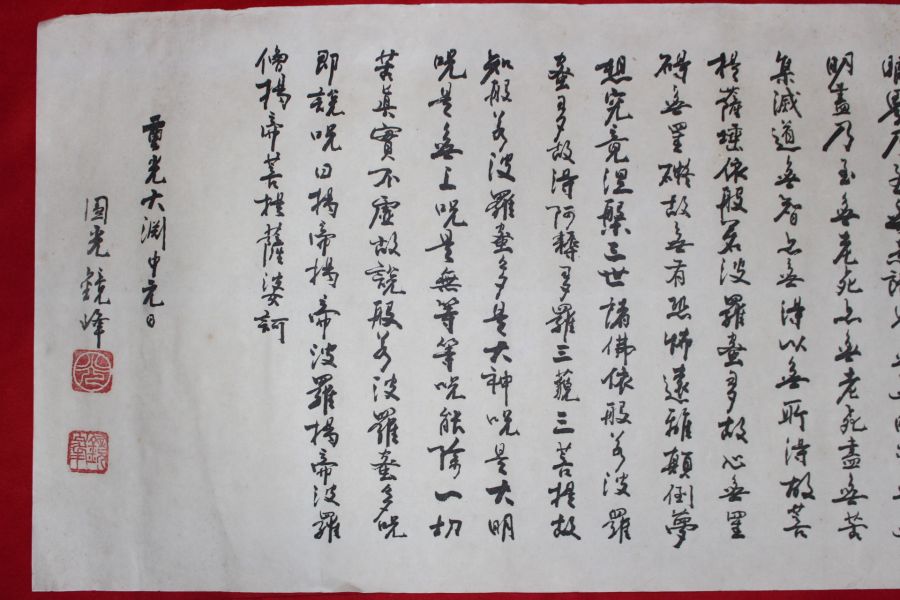 眼界乃至無意識
明盡乃至無老死亦無老死盡無苦
集滅道無智亦無得以無所得故菩
提薩埵依般若波羅蜜多故心無罣
碍無罣礙故無有恐怖遠離顛倒夢
想究竟涅槃三世諸佛依般若波羅
蜜多故得阿耨多羅三藐三菩提故
知般若波羅蜜多是大神呪是大明
呪是無上呪是無等等呪能除一切
苦真實不虛故說般若波羅蜜多呪
即說呪曰揭帝揭帝波羅揭帝波羅
僧揭帝菩提薩婆訶
重光大渊中元日
圓光鏡峰